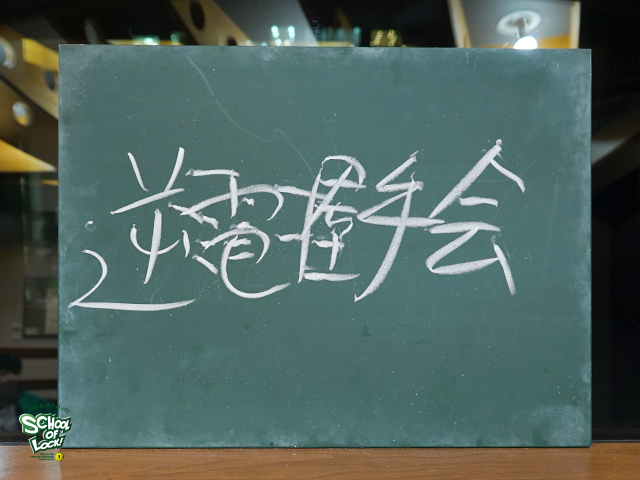 逆電握手会
SCHOOL
OF
LOCK!